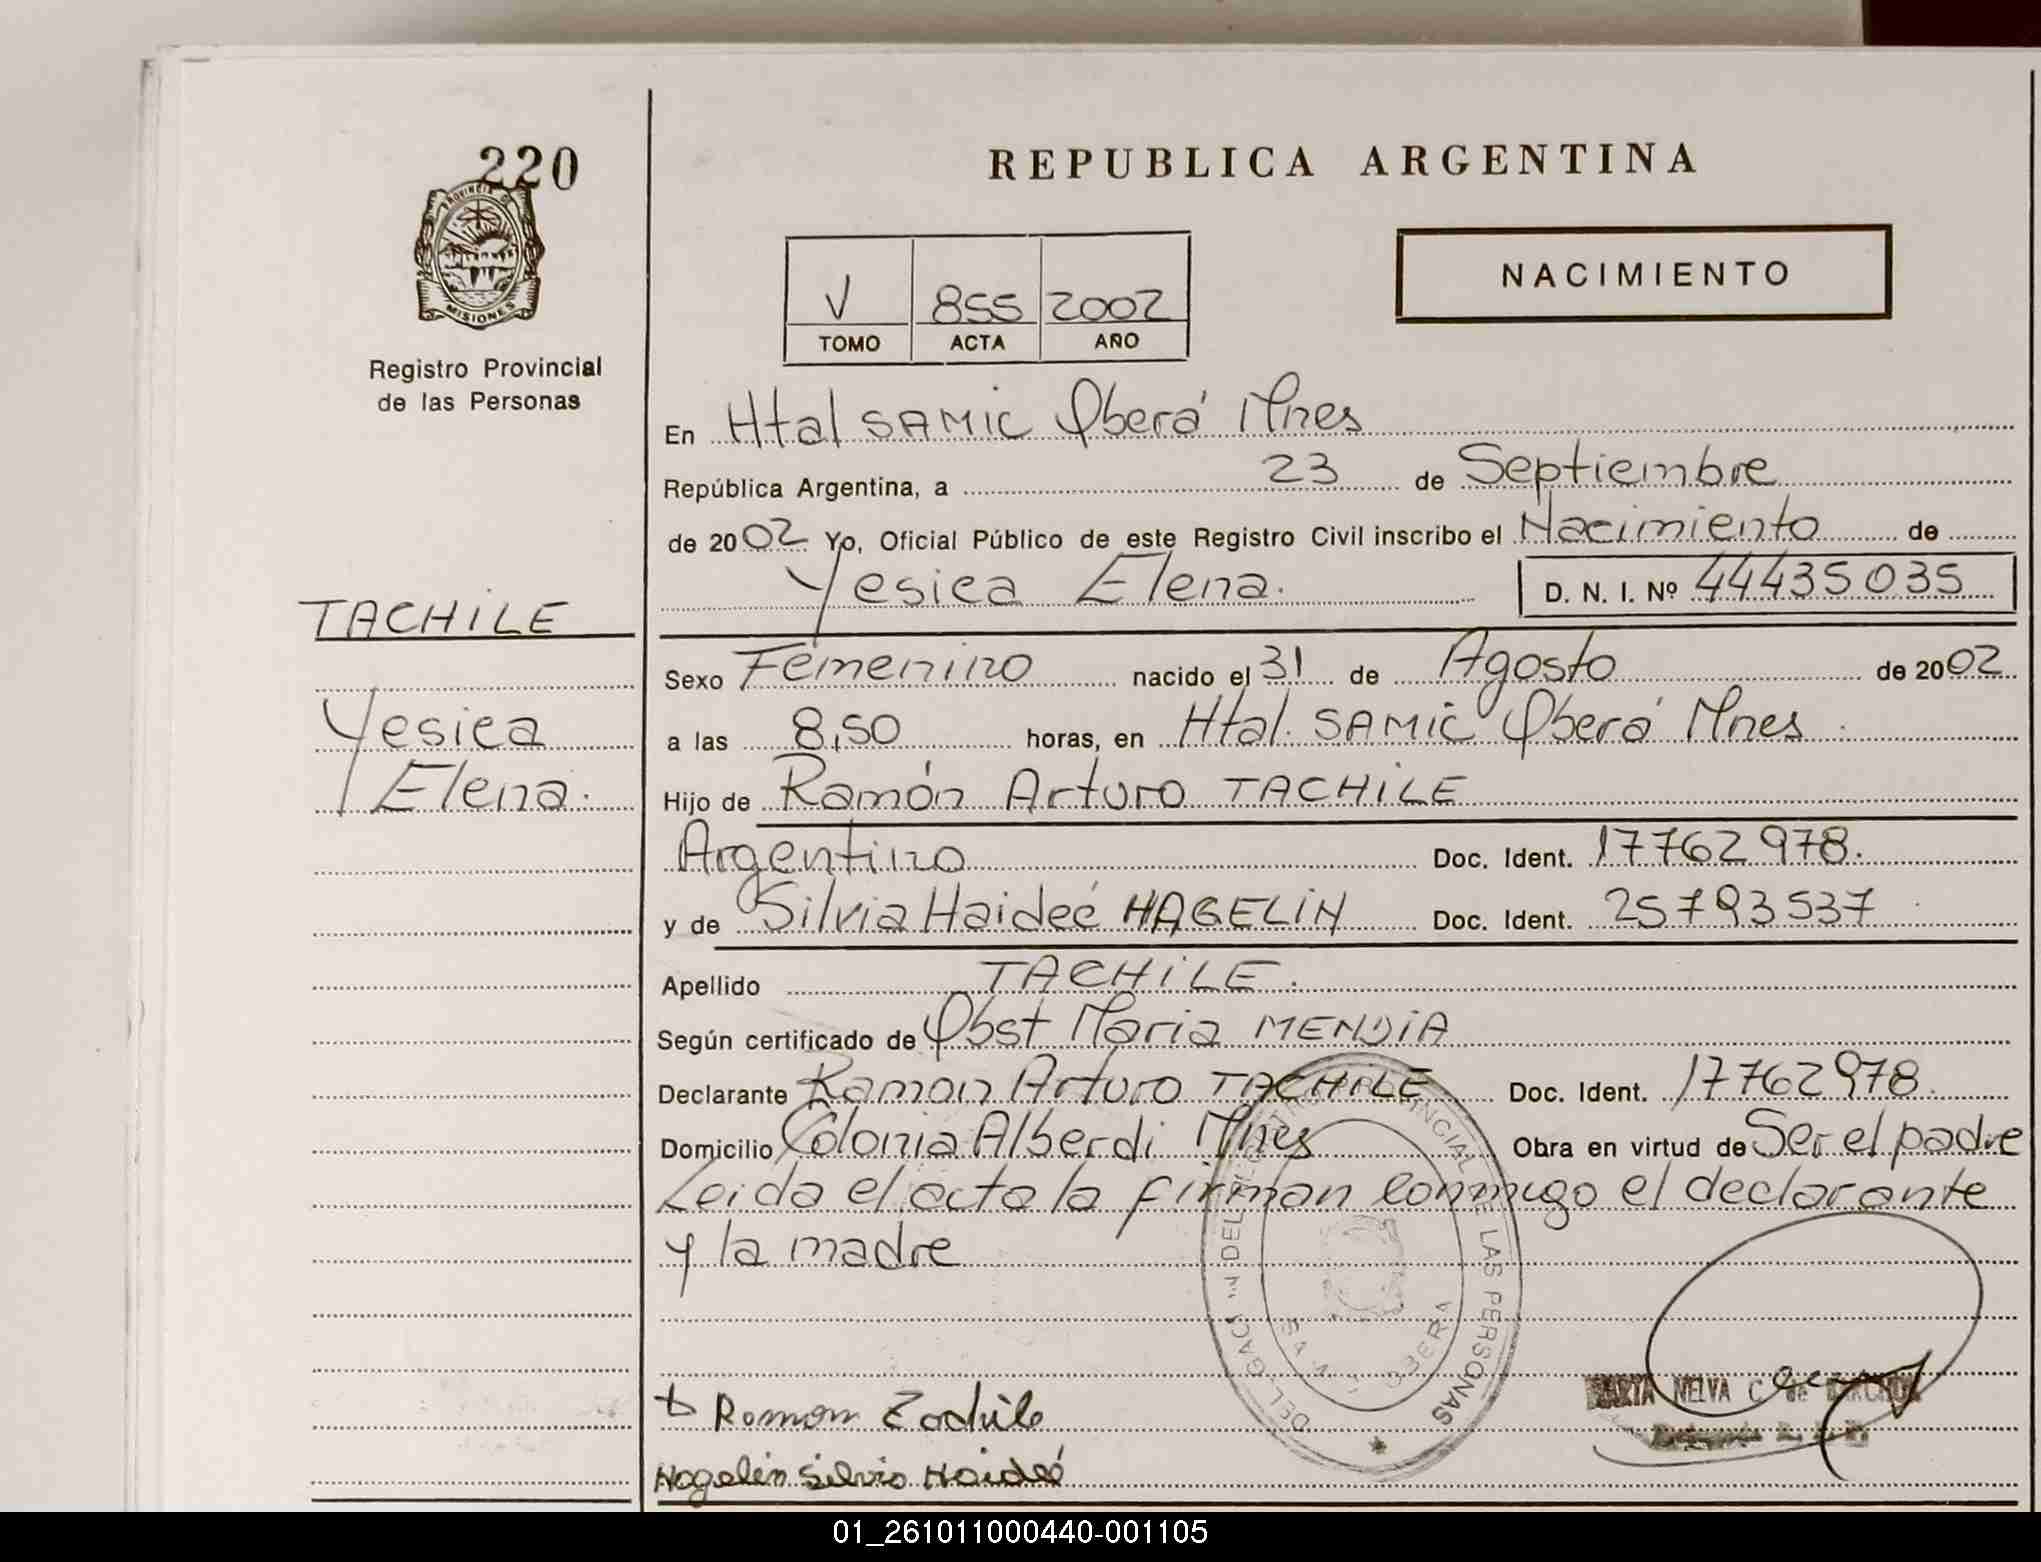 220
PROVINCIA DE
MISIONES
Registro Provincial
de las Personas
TACHILE
Yesica
Elena.
REPUBLICA ARGENTINA
NACIMIENTO
V 855 2002
TOMO ACTA AÑO
En Htal SAMIC Oberá Mnes
República Argentina, a 23 de Septiembre
de 2002 Yo, Oficial Público de este Registro Civil inscribo el Nacimiento de
Yesica Elena. D. N. I. Nº 44435035
Sexo Femenino nacido el 31 de Agosto de 2002
a las 8,50 horas, en Htal. SAMIC Oberá Mnes.
Hijo de Ramón Arturo TACHILE
Argentino Doc. Ident. 17762978.
y de Silvia Haideé HAGELIN Doc. Ident. 25793537
Apellido TACHILE.
Según certificado de Obst Maria MENDIA
Declarante Ramon Arturo TACHILE Doc. Ident. 17762978.
Domicilio Colonia Alberdi Mnes Obra en virtud de Ser el padre
Leida el acta la firman conmigo el declarante
y la madre
PROVINCIAL DE LAS PERSONAS
OBERA
Ramon Tachile
Hagelin Silvia Haideé
NELVA C
01_261011000440-001105